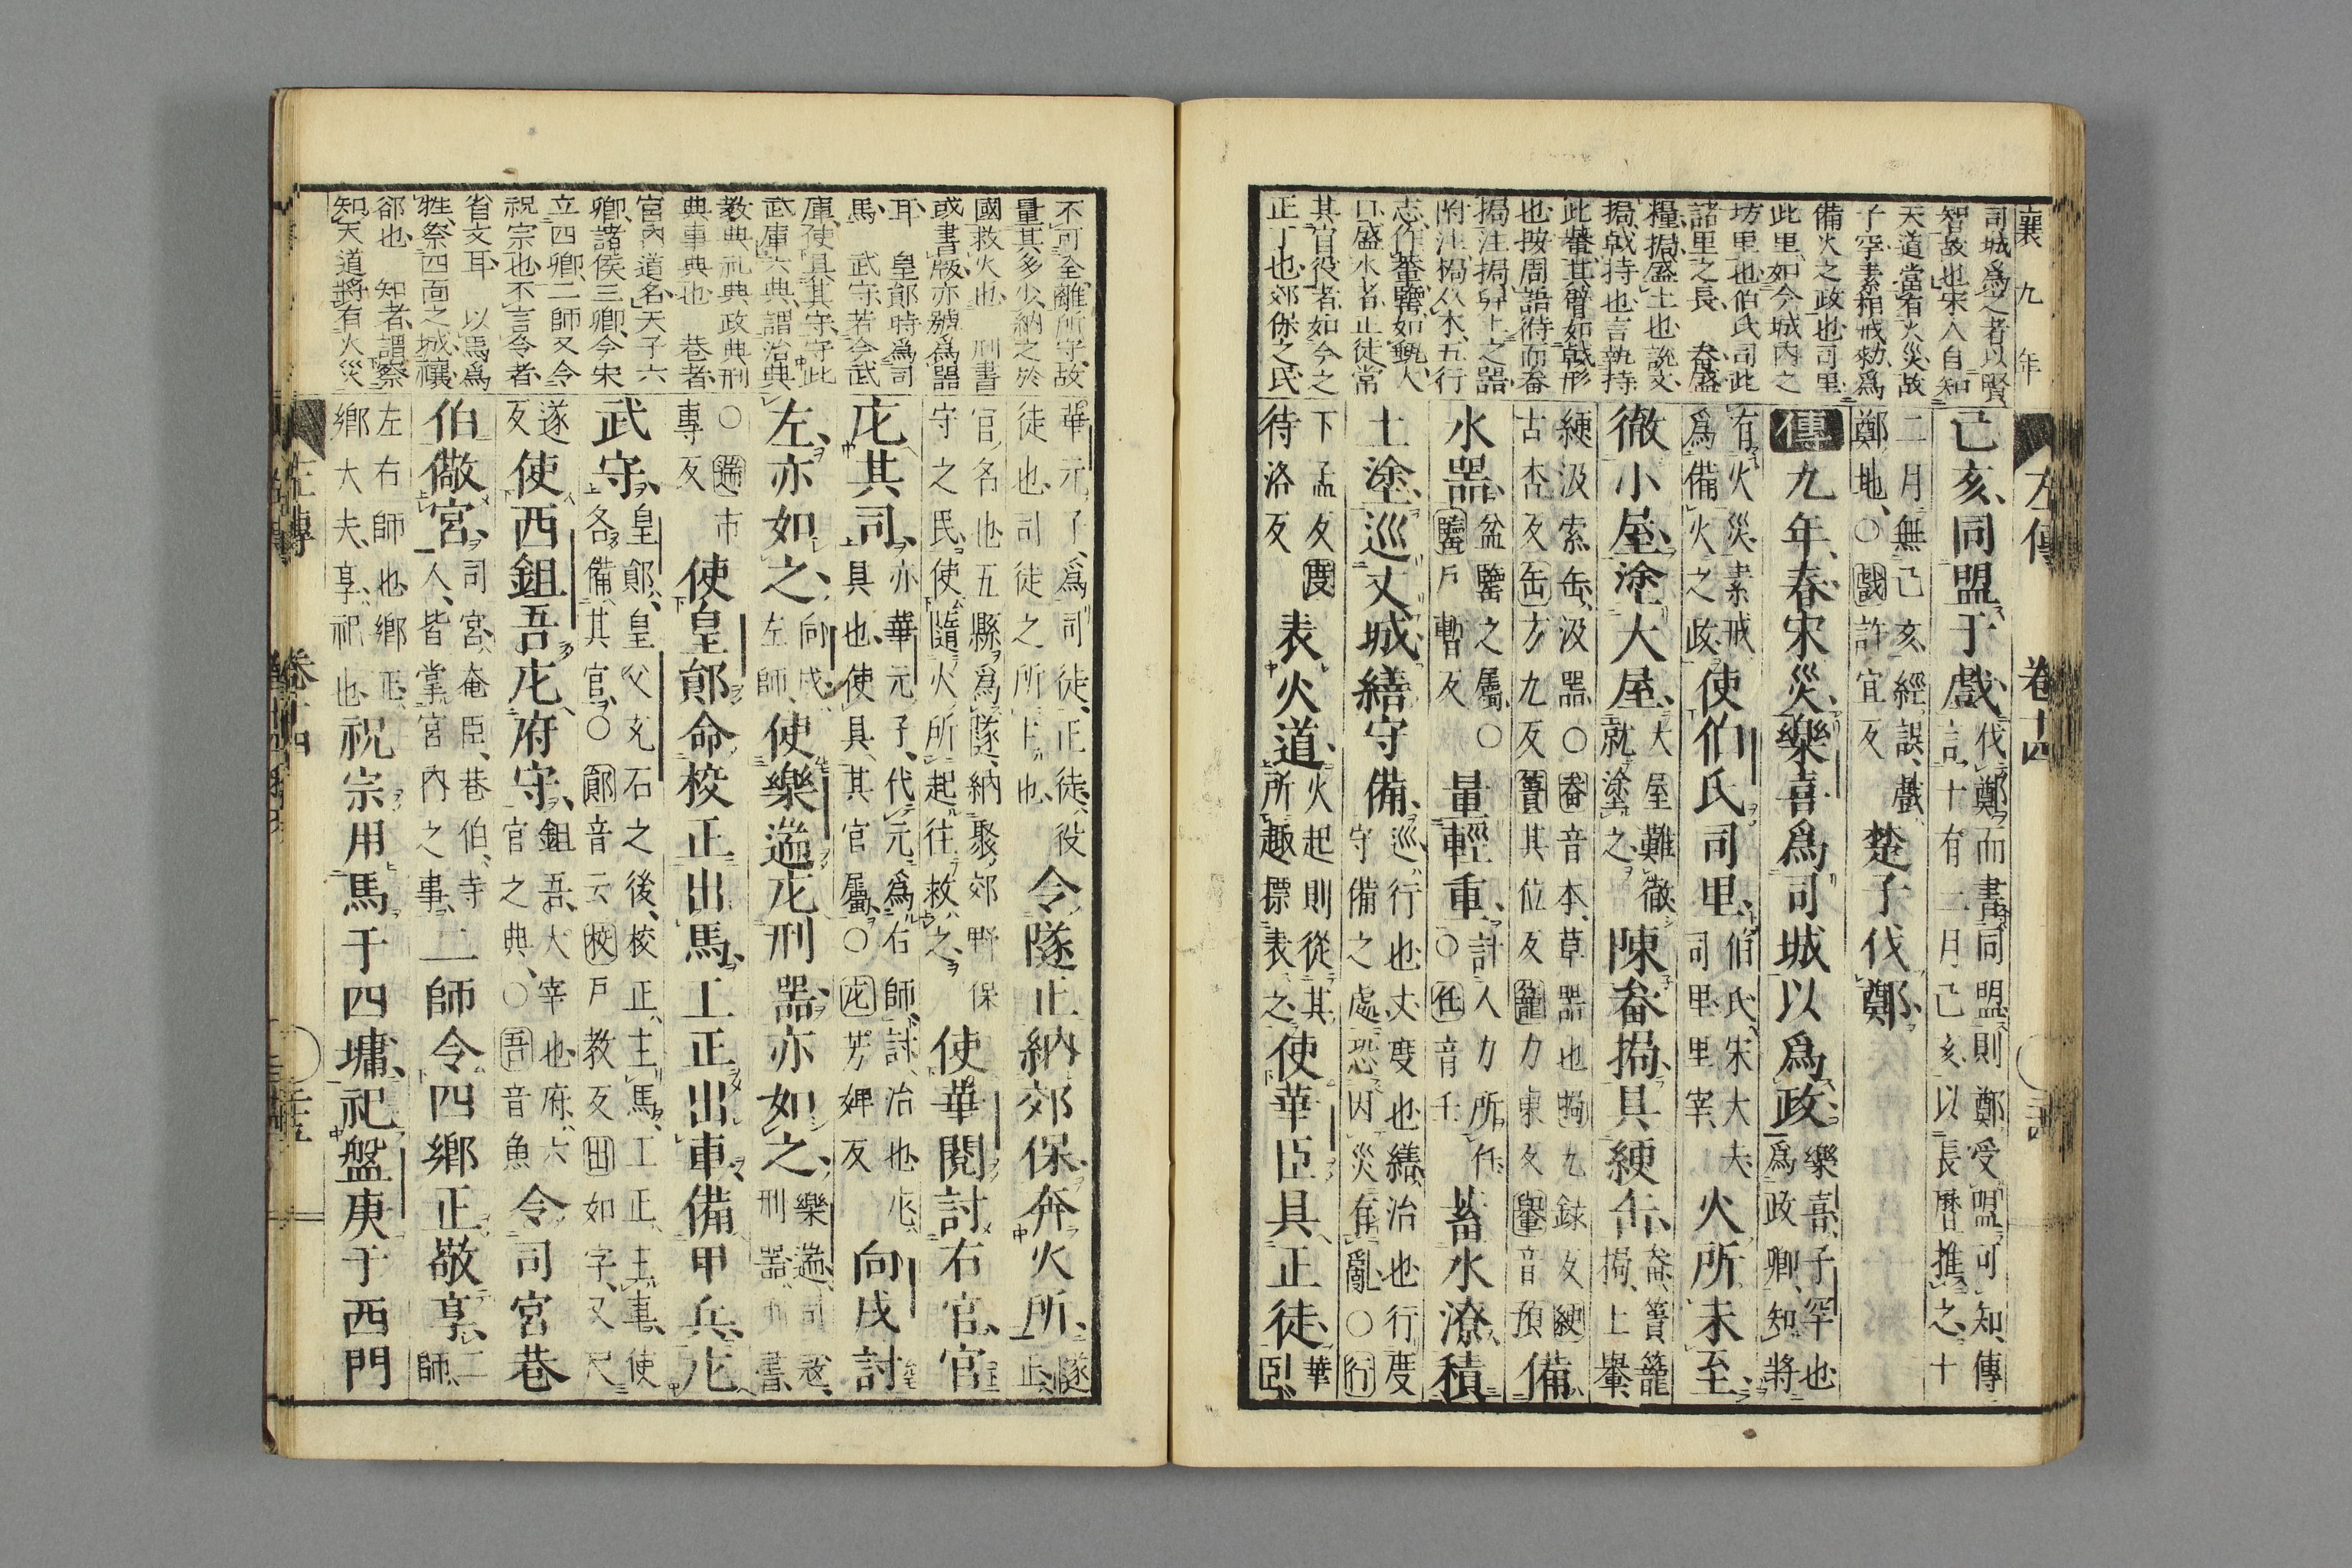 襄九年
左傳 卷十四
司城爲之者以賢
智故也宋人自知
天道當有火災故
子罕素相戒勑爲
備火之政也司里
此里如今城内之
坊里也伯氏司此
諸里之長 畚盛
糧挶盛土也説文
挶戟持也言執持
此畚其臂如戟形
也按周語待而畚
挶注挶舁土之器
附注挶以木五行
盛水者正徒常
其官役者如今之
正丁也郊保之民
己亥同盟于戲
伐鄭而書同盟則鄭受盟可知傳
言十有二月己亥以長曆推之十
二月無己亥經誤戲
鄭地〇戲許宜反
楚子伐鄭
傳九年春宋災樂喜爲司城以爲政
樂喜子罕也
爲政卿知將
有火災素戒
爲備火之政
使伯氏司里
伯氏宋大夫
司里里宰
火所未至
徹小屋塗大屋
大屋難徹
就塗之
陳畚挶具綆缶
畚簣籠
挶土轝
綆汲索缶汲器〇畚音本草器也挶九錄反綆
古杏反缶方九反簣其位反籠力東反轝音預
備
水器
盆鑒之屬〇
鑒戶暫反
量輕重
計人力所任
〇任音壬
蓄水潦積
土塗巡丈城繕守備
巡行也丈度也繕治也行度
守備之處恐因災有亂〇行
下孟反度
待洛反
表火道
火起則從其
所趣摽表之
使華臣具正徒
華
臣
不可全離所守故
量其多少納之於
國救火也 刑書
或書版亦號爲器
耳 皇鄖時爲司
馬 武守若今武
庫使具其守守此
武庫六典謂治典
教典礼典政典刑
典事典也 巷者
宮内道名天子六
卿諸侯三卿今宋
立四卿二師又令
祝宗也不言令者
省文耳 以馬爲
牲祭四面之城禳
郤也 知者謂察
知天道將有火災
華元子爲司徒正徒役
徒也司徒之所主也
令隧正納郊保奔火所
隧
正
官名也五縣爲隧納聚郊野保
守之民使隨火所起往救之
使華閱討右官官
庀其司
亦華元子代元爲右師討治也庀
具也使具其官屬〇庀芳婢反
向戌討
左亦如之
向戌
左師
使樂遄庀刑器亦如之
樂遄司寇
刑器刑書
〇遄市
專反
使皇鄖命校正出馬工正出車備甲兵庀
武守
皇鄖皇父充石之後校正主馬工正主車使
各備其官〇鄖音云校戶教反出如字又尺
遂
反
使西鉏吾庀府守
鉏吾大宰也府六
官之典〇吾音魚
令司宮巷
伯儆宮
司宮奄臣巷伯寺
人皆掌宮内之事
二師令四鄉正敬享
二
師
左右師也鄉正
鄉大夫享祀也
祝宗用馬于四墉祀盤庚于西門
左傳 卷十四 三十五